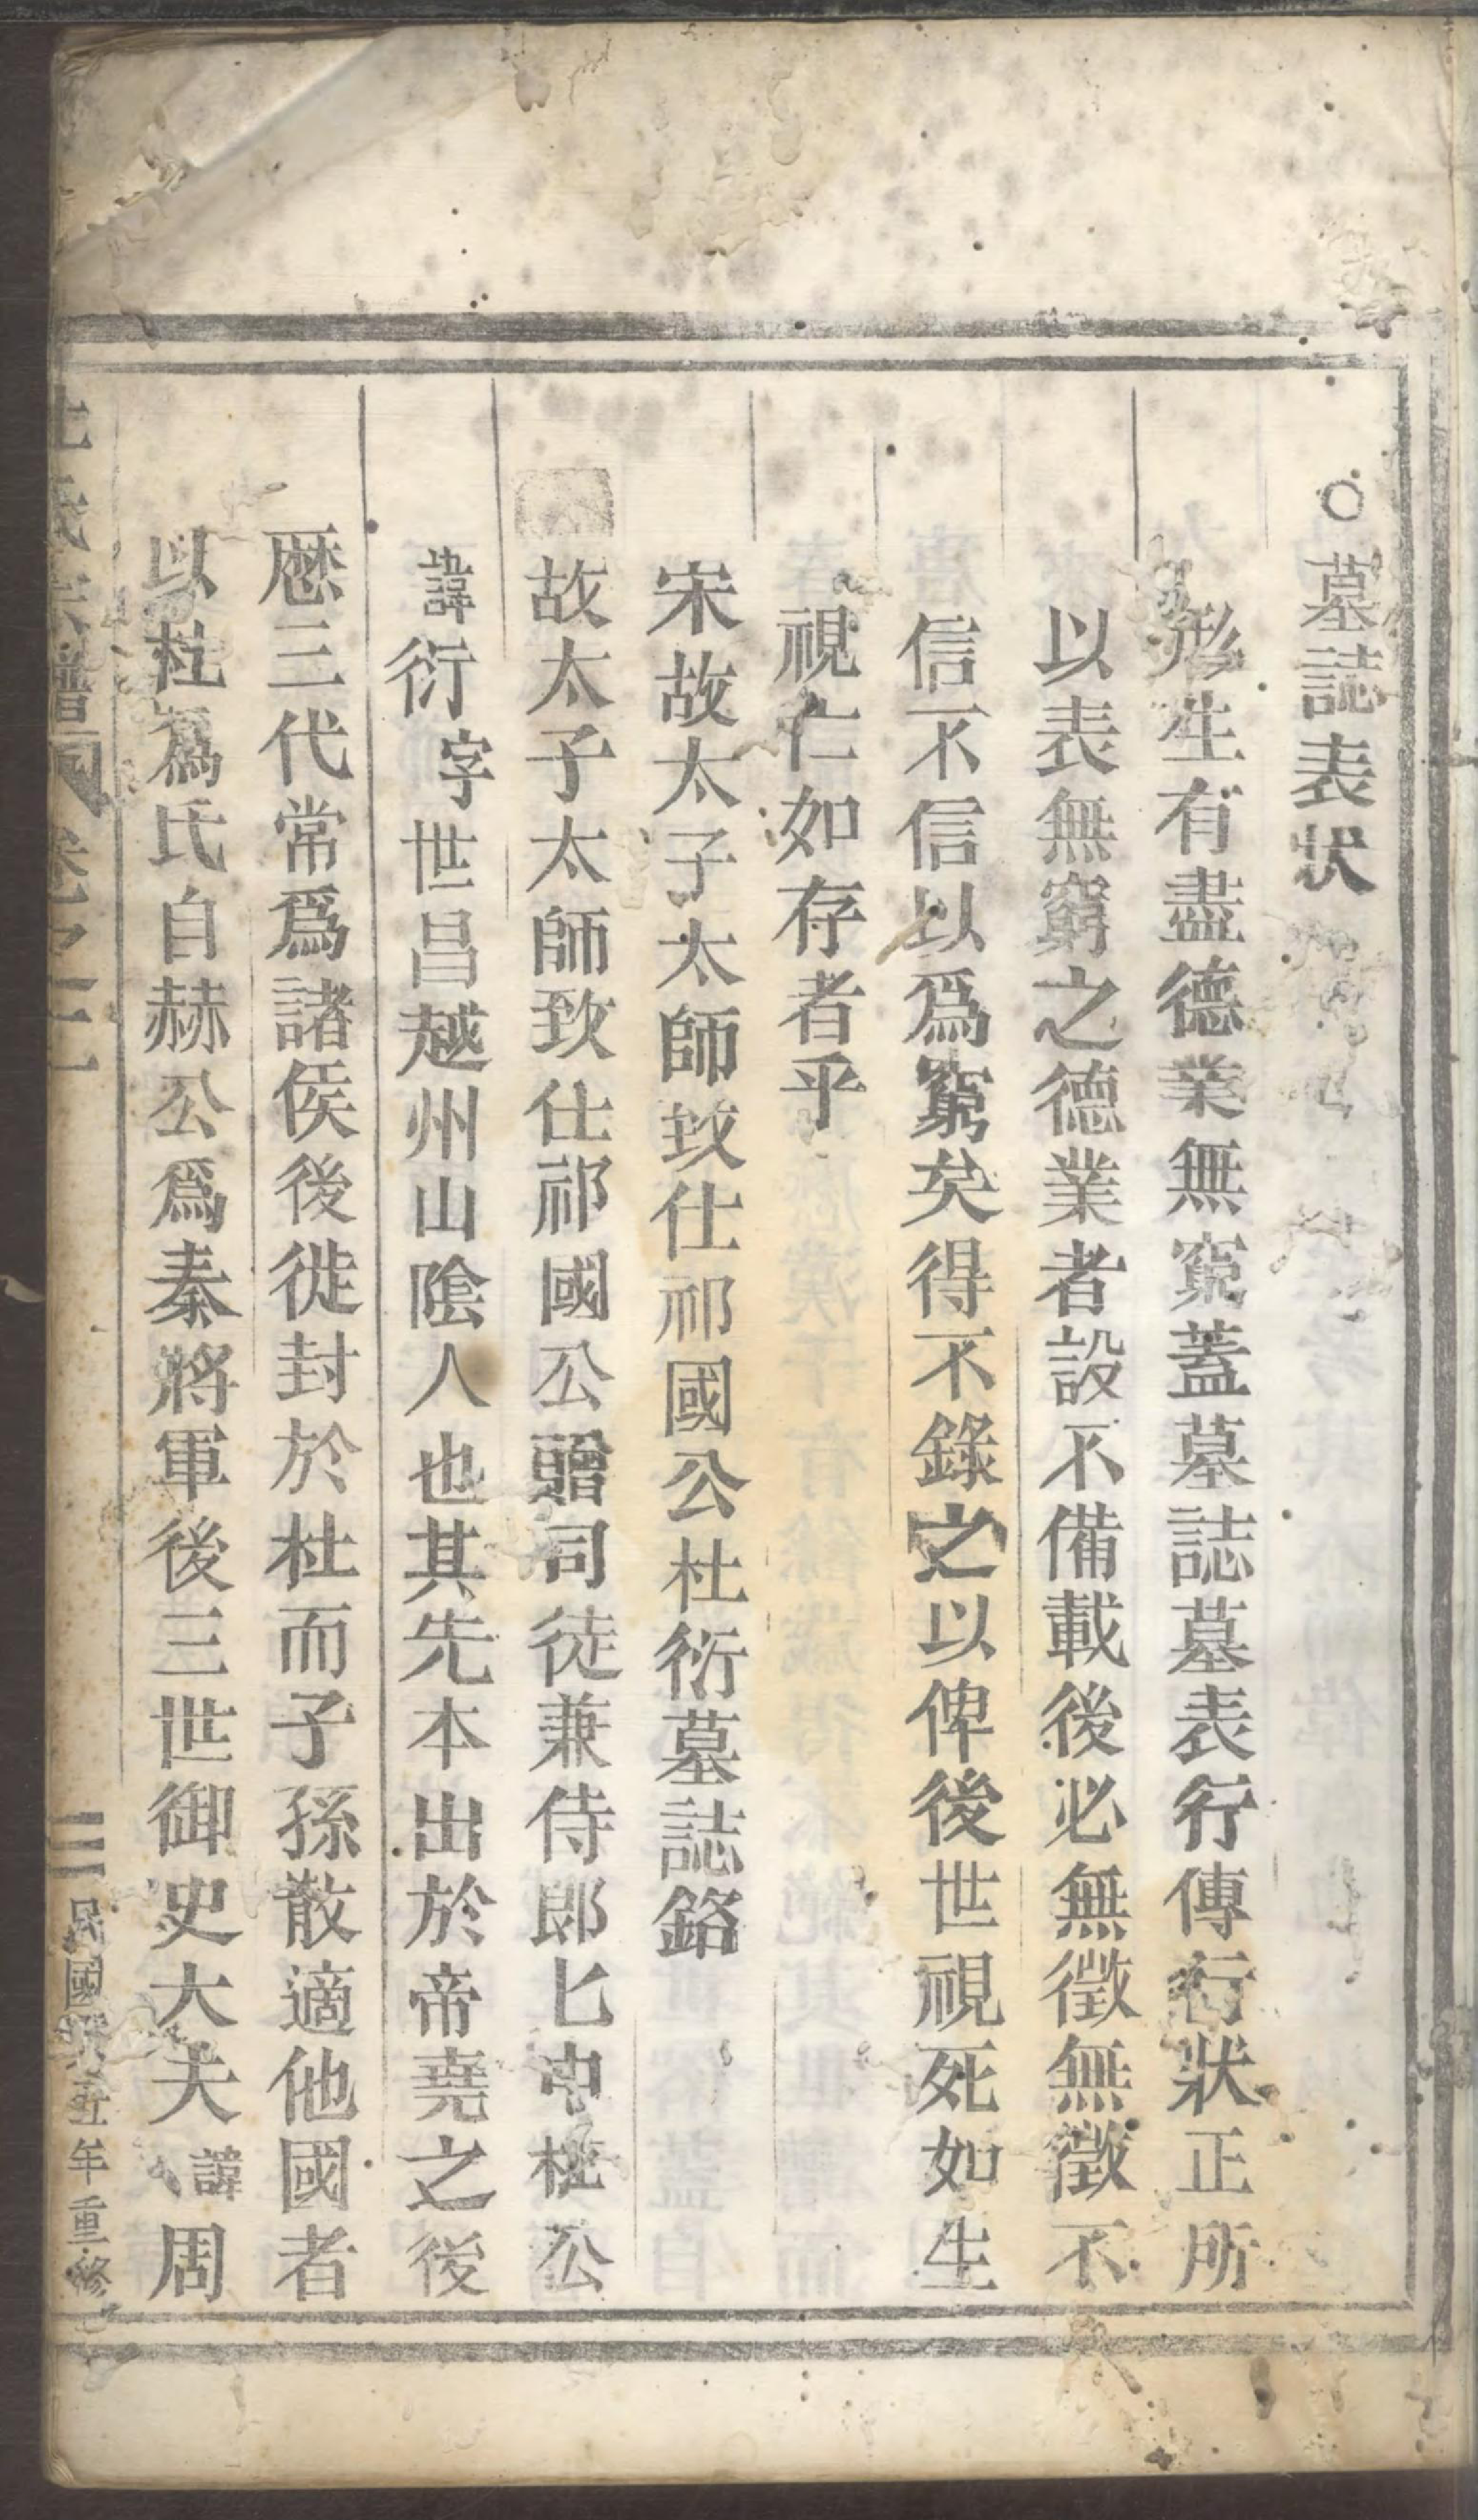 ○墓誌表狀
形生有盡德業無窮蓋墓誌墓表行傳行狀正所
以表無窮之德業者設不備載後必無徵無徵不
信不信以爲窮矣得不錄之以俾後世視死如生
視亡如存者乎
宋故太子太師致仕祁國公杜衍墓誌銘
故太子太師致仕祁國公贈司徒兼侍郎匕中杜公
諱衍字世昌越州山陰人也其先本出於帝堯之後
歷三代常爲諸侯後徙封於杜而子孫散適他國者
以杜爲氏自赫公爲秦將軍後三世御史大夫諱周
杜氏宗譜 卷之二 三 民國 五年重修